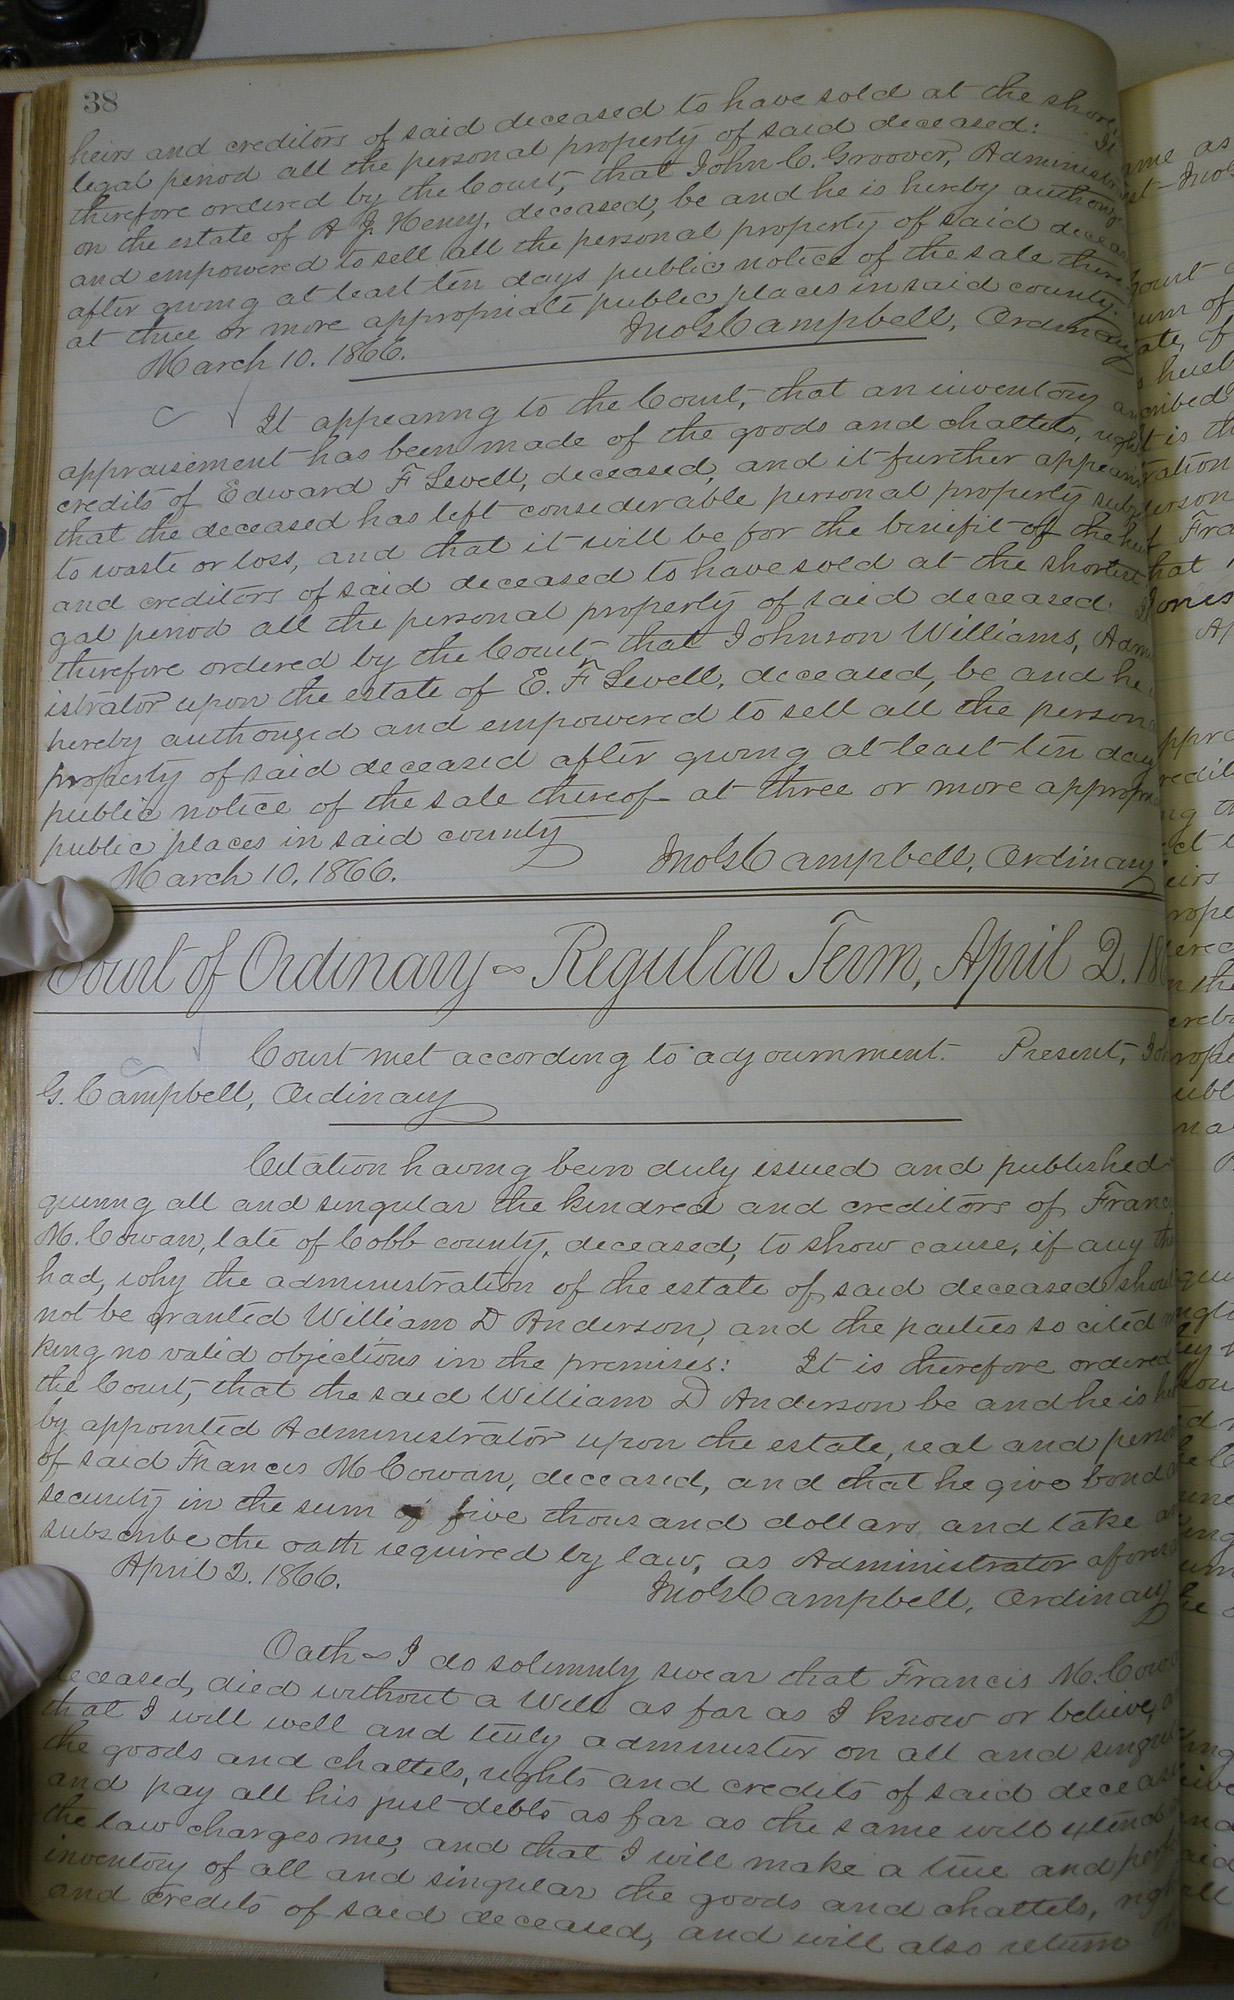 38
heirs and creditors of said deceased to have sold at the
legal period all the personal property of said deceased: It
therefore ordered by the Court, that John C. Groover,
on the estate of A J. Henry, deceased, be and he is hereby
and empowered to sell all the personal property of said
after giving at least ten days public notice of the sale
at three or more appropriate public places in said county.
March 10. 1866. Jno G Campbell, Ordinary
It appearing to the Court, that an inventory
appraisement has been made of the goods and chattels,
credits of Edward F Sewell, deceased, and it further
that the deceased has left considerable personal property
to waste or loss, and that it will be for the binifit of the
and creditors of said deceased to have sold at the shortest
gal period all the personal property of said deceased:
therefore ordered by the Court that Johnson Williams,
istrator upon the estate of E. F Sewell, deceased, be and he
hereby authorized and empowered to sell all the
property of said deceased after giving at least ten
public notice of the sale thereof at three or more
public places in said county
March 10. 1866. Jno G Campbell, Ordinary
Court of Ordinary ~ Regular Term, April 2.
Court met according to adjournment. Present,
G. Campbell, Ordinary
Citation having been duly issued and published
quiring all and singular the kindred and creditors of
M. Cowan, late of Cobb county, deceased, to show cause, if any
had, why the administration of the estate of said deceased
not be granted William D Anderson, and the parties so cited
king no valid objections in the premises: It is therefore ordered
the Court, that the said William D Anderson be and he is
by appointed Administrator upon the estate, real and
of said Francis M Cowan, deceased, and that he give bond
security in the sum of five thousand dollars and take
subscribe the oath required by law, as Administrator
April 2. 1866. Jno G Campbell, Ordinary
Oath ~ I do solemnly swear that Francis M.
deceased, died without a Will as far as I know or believe,
that I will well and truly administer on all and
the goods and chattels, rights and credits of said
and pay all his just debts as far as the same will extend
the law charges me, and that I will make a true and
inventory of all and singular the goods and chattels,
and credits of said deceased, and will also return